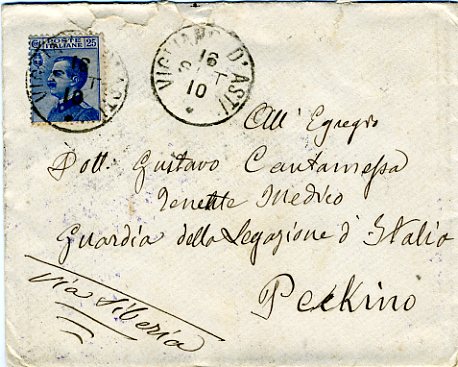 POSTE ITALIANE 25
VIGLIANO D'ASTI
16
10
All' Egregio
Dott. Gustavo Cantamessa
Tenente Medico
Guardia della Legazione d'Italia
Peckino
via Siberia